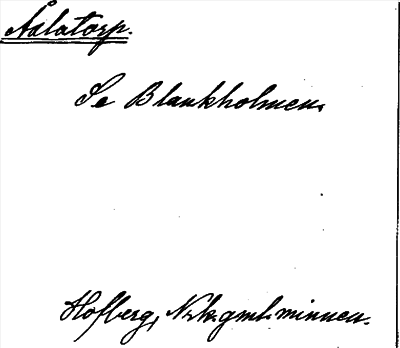 Åslatorp.
Se Blankholmen.
Hofberg, Nrk. gml. minnen.